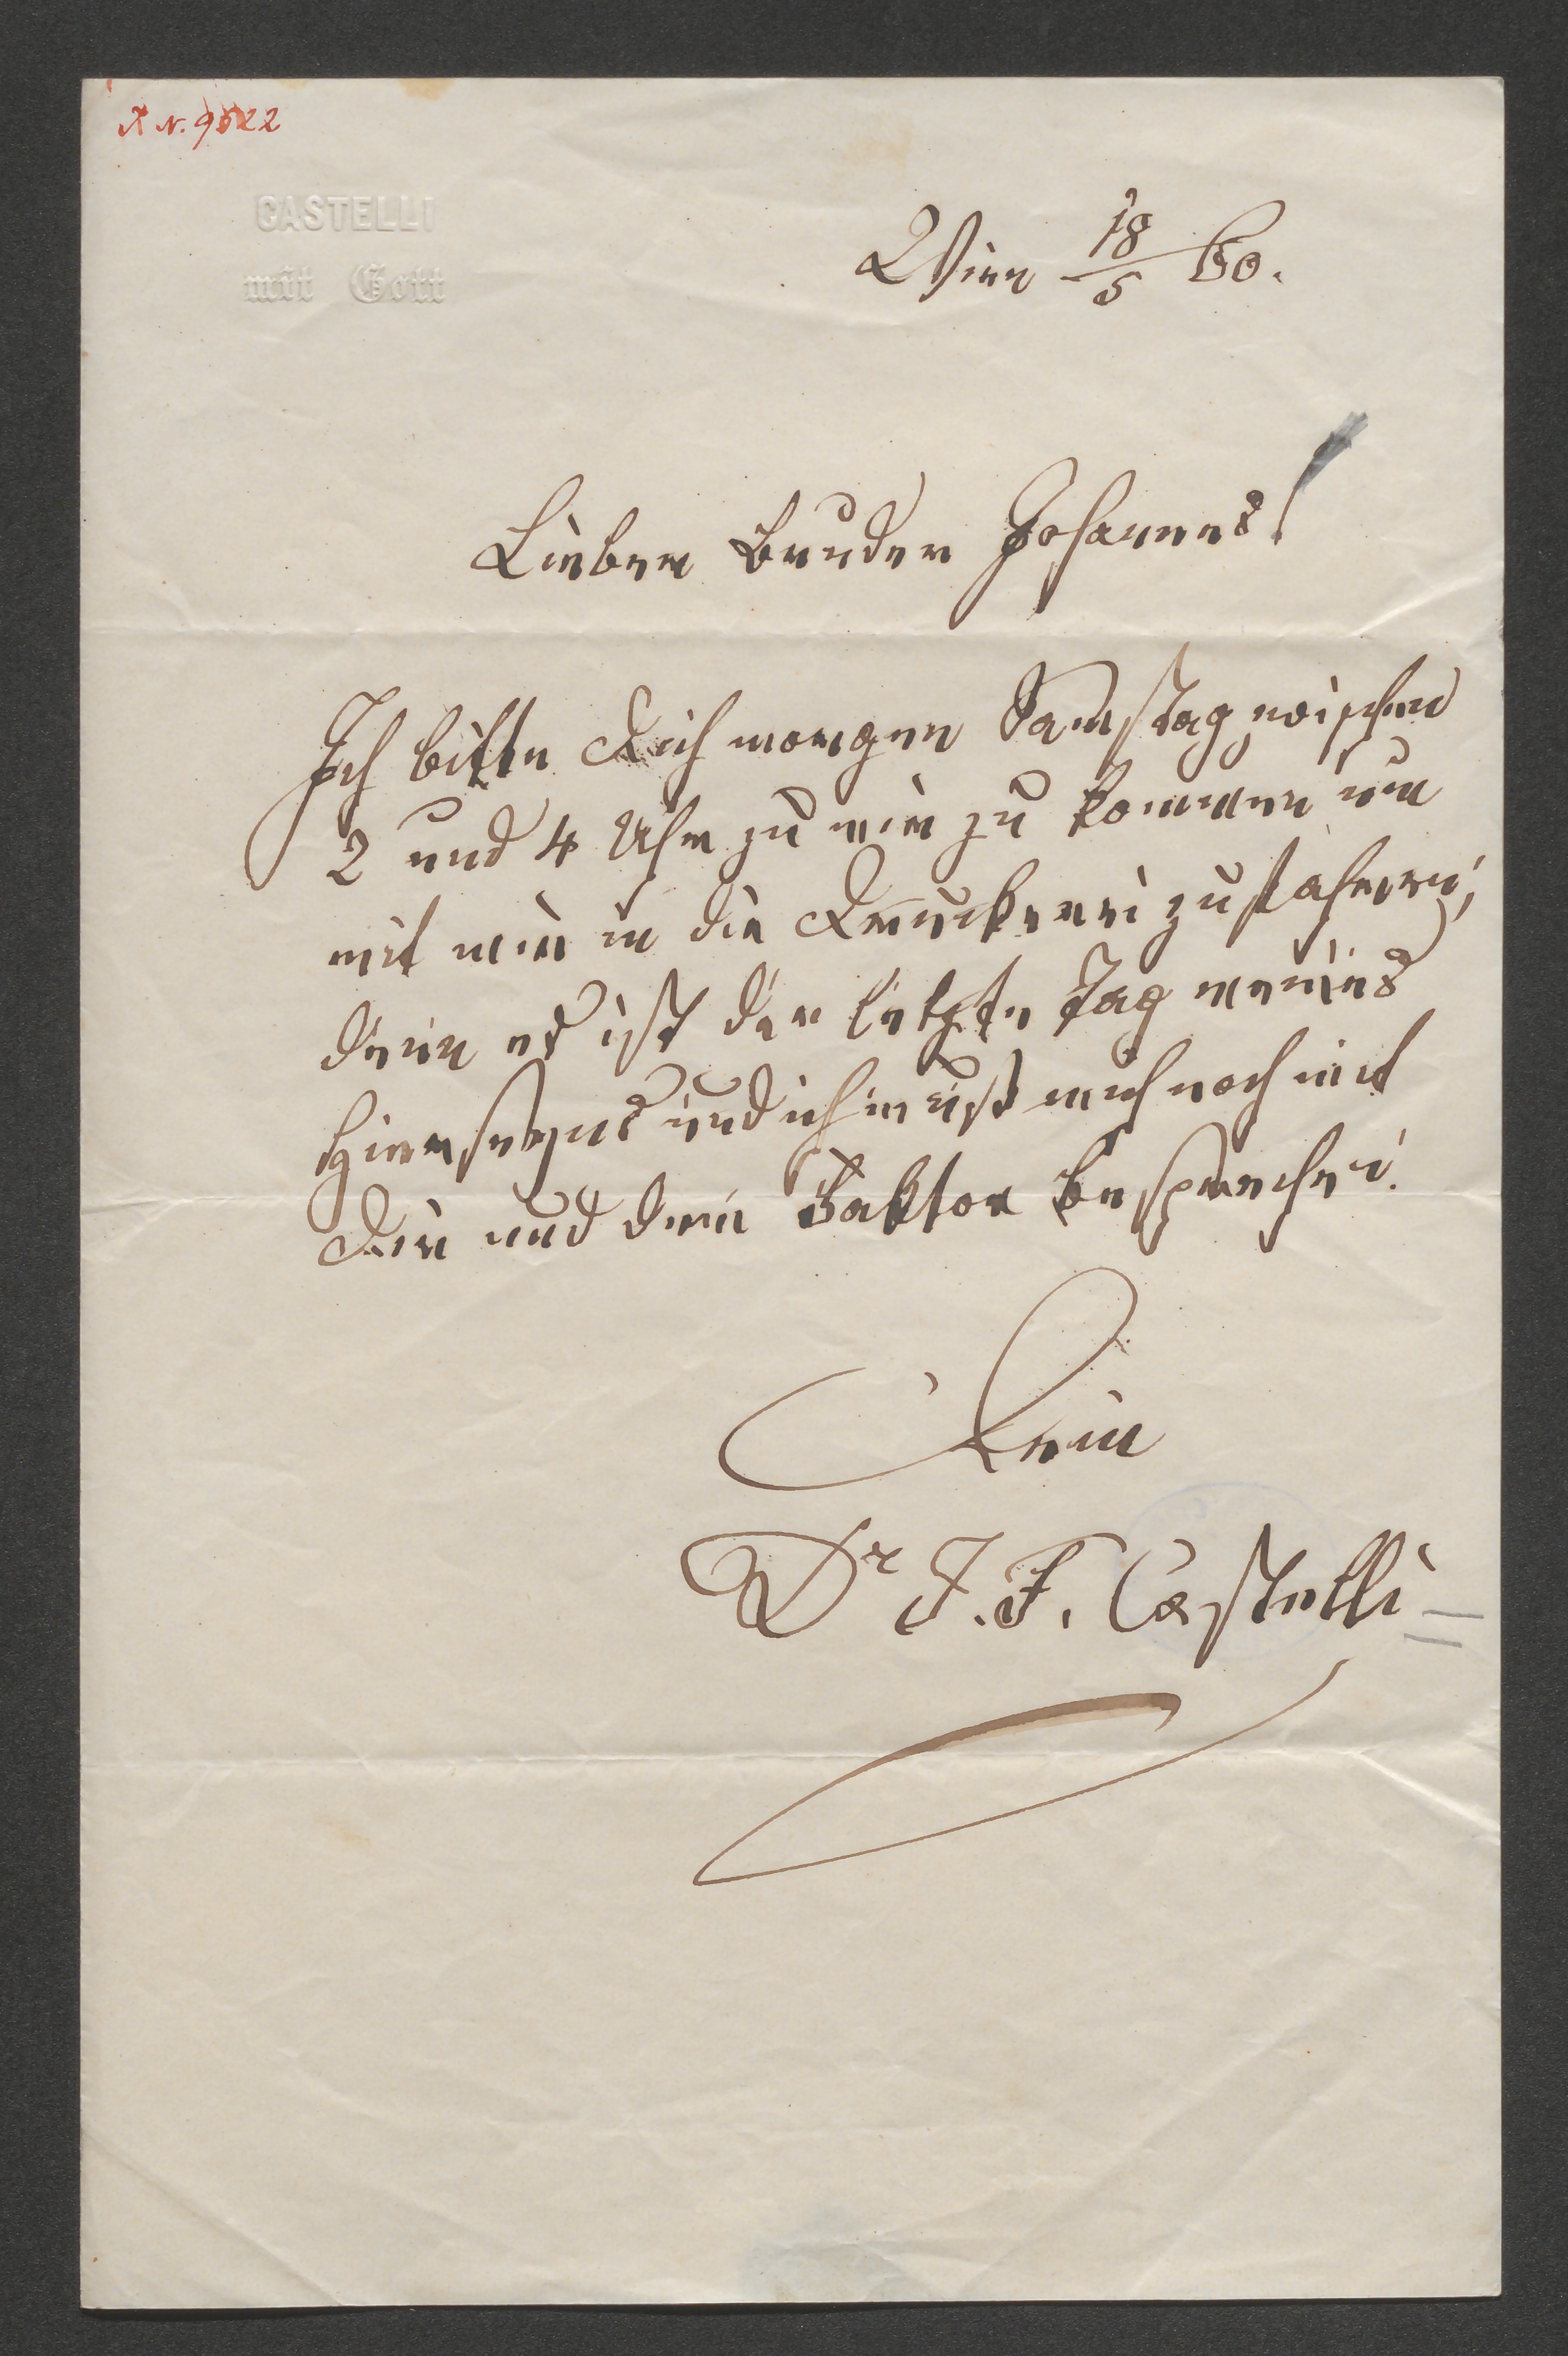 A N. 9522
CASTELLI
mit Gott
Wien 18/5 60.
Lieber Bruder Johannes!
Ich bitte Dich morgen Samstag zwischen
2 und 4 Uhr zu mir zu kommen um
mit mir in die Druckerei zu fahren,
denn es ist der letzte Tag meines
Hierseyns und ich muß mich noch mit
Dir und dem Faktor besprechen.
Dein
Dr I. F. Castelli